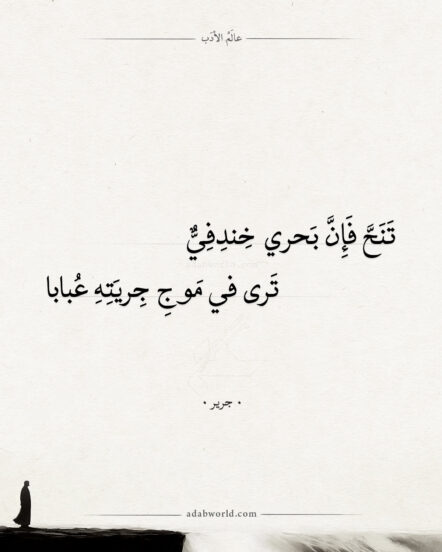 عالَمُ الأدَب
تَنَحَّ فَإِنَّ بَحري خِندِفِيٌّ
تَرى في مَوجِ جِريَتِهِ عُبابا
• جرير •
adabworld.com